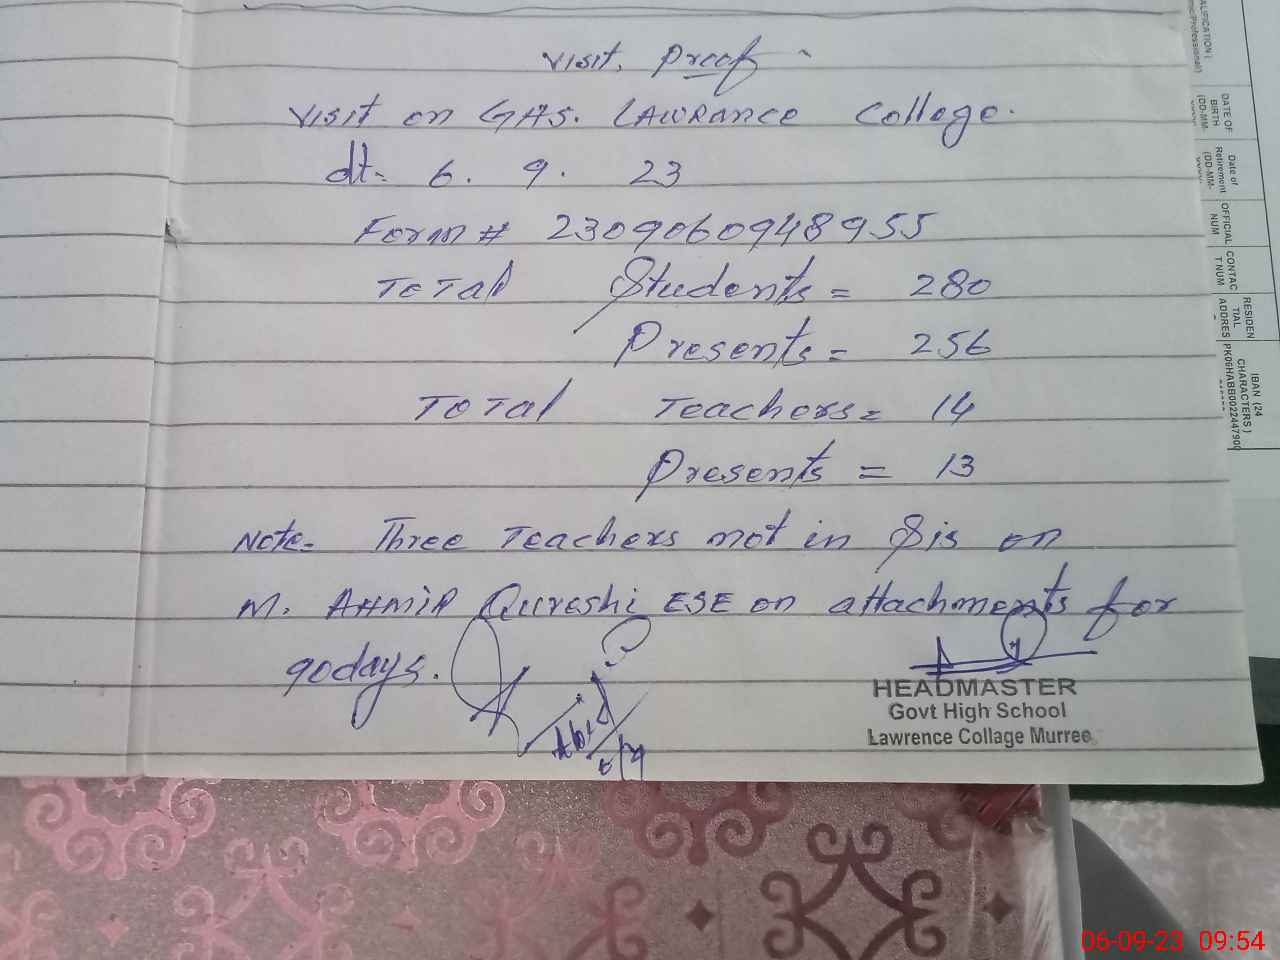 Visit Proof
Visit on GHS. LAWRance College.
dt- 6. 9. 23
Form # 2309060948955
ToTal Students = 280
Presents = 256
ToTal Teachers = 14
Presents = 13
Note- Three Teachers not in Sis on
M. AHMiR Qureshi ESE on attachments for
90days.
HEADMASTER
Govt High School
Lawrence Collage Murree
DATE OF BIRTH (DD-MM-
Date of Retirement (DD-MM-
OFFICIAL NUM
CONTAC T NUM
RESIDEN TIAL ADDRES
IBAN (24 CHARACTERS)
PK06HABB0022447900
06-09-23 09:54